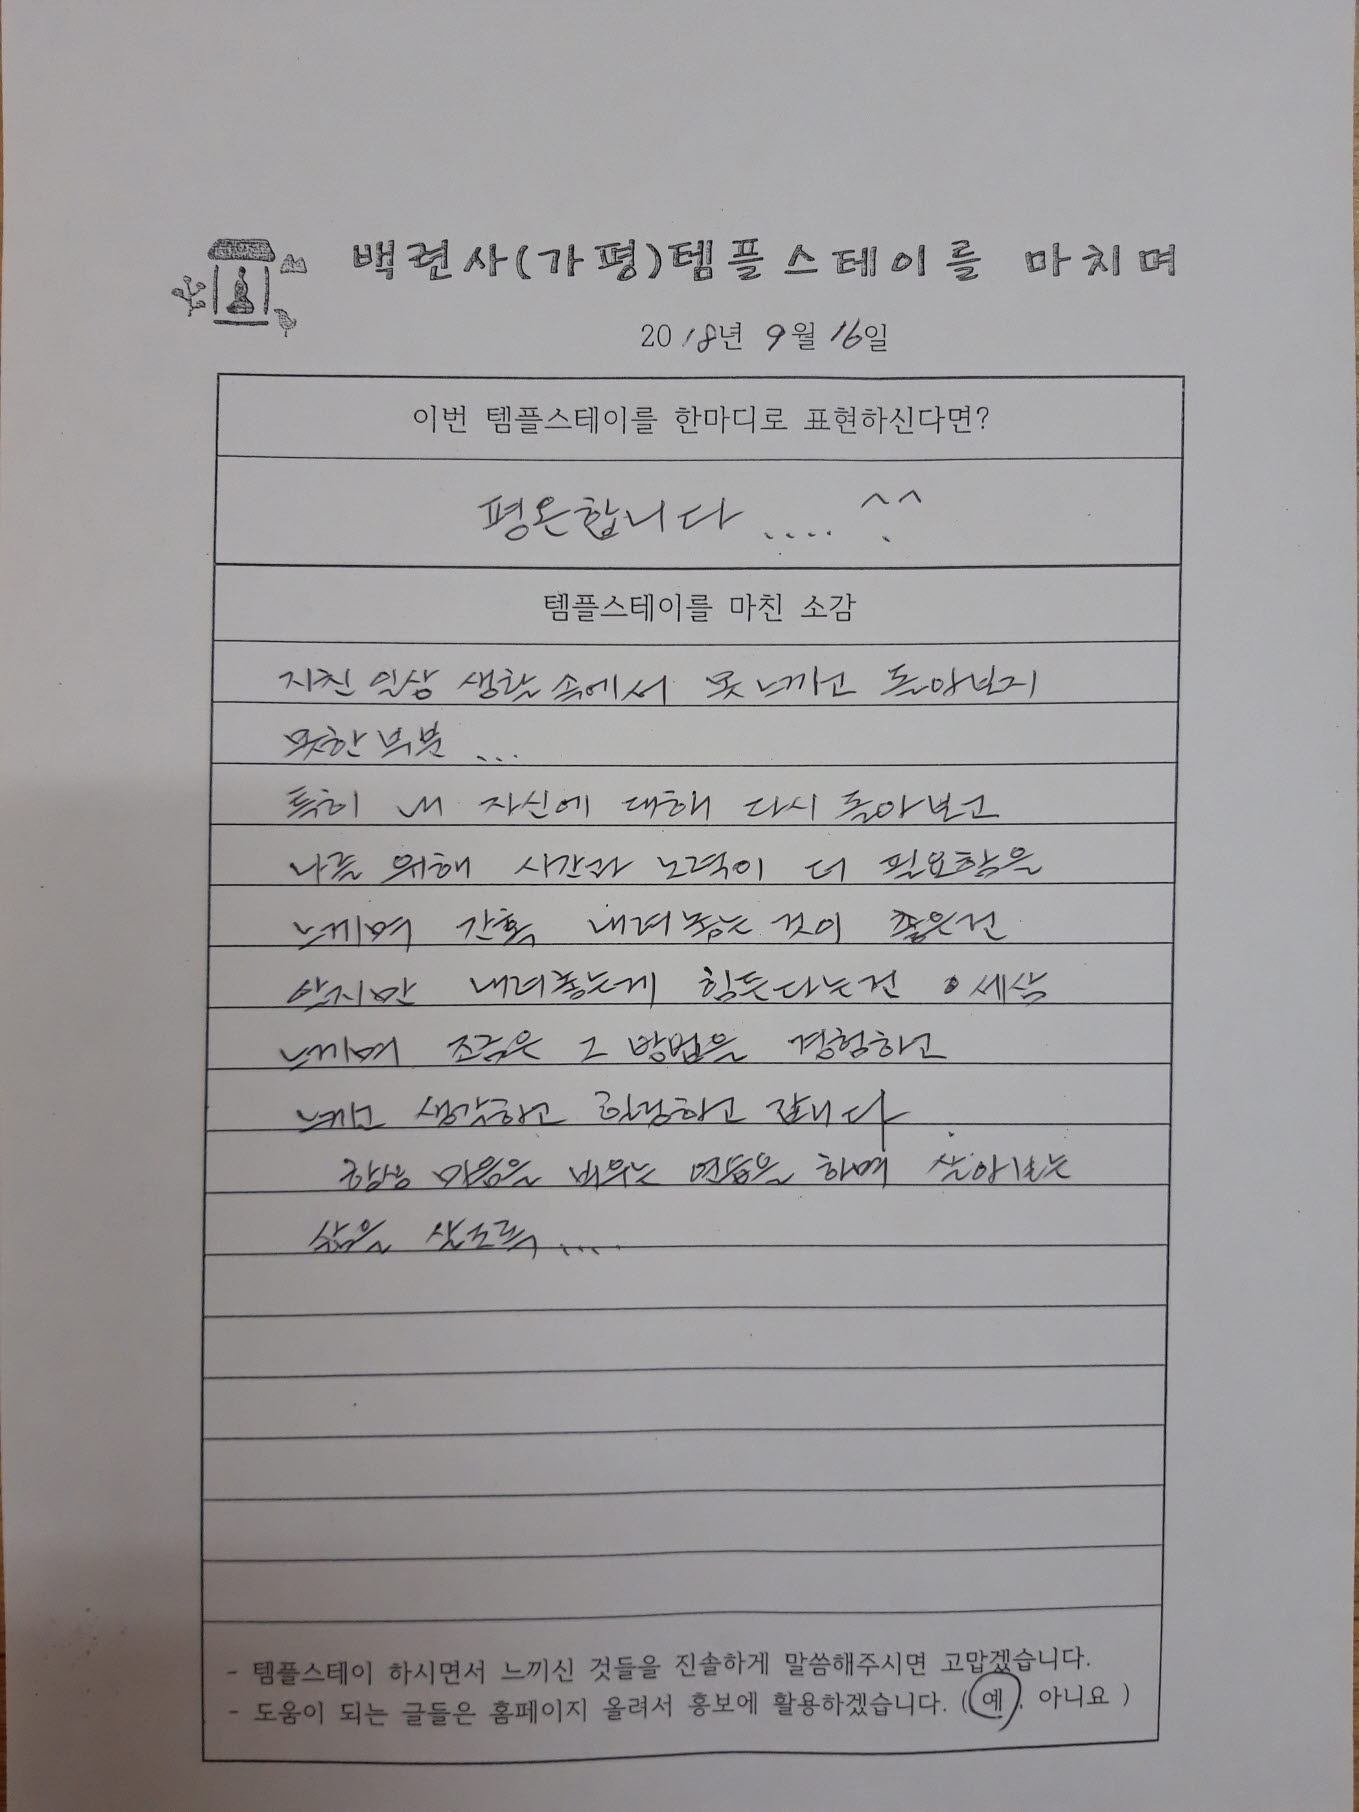 백련사(가평)템플스테이를 마치며
2018년 9월 16일
이번 템플스테이를 한마디로 표현하신다면?
평온합니다 .... ^^
템플스테이를 마친 소감
지친 일상 생활 속에서 못 느끼고 돌아보지
못한 부분 ...
특히 내 자신에 대해 다시 돌아보고
나를 위해 시간과 노력이 더 필요함을
느끼며 간혹 내려놓는 것이 좋은건
알지만 내려놓는게 힘든다는건 세삼
느끼며 조금은 그 방법을 경험하고
느끼고 생각하고 갑니다
항상 마음을 비우는 연습을 하며 살아보는
삶을 살도록 ....
- 템플스테이 하시면서 느끼신 것들을 진솔하게 말씀해주시면 고맙겠습니다.
- 도움이 되는 글들은 홈페이지 올려서 홍보에 활용하겠습니다. ( 예 , 아니요 )